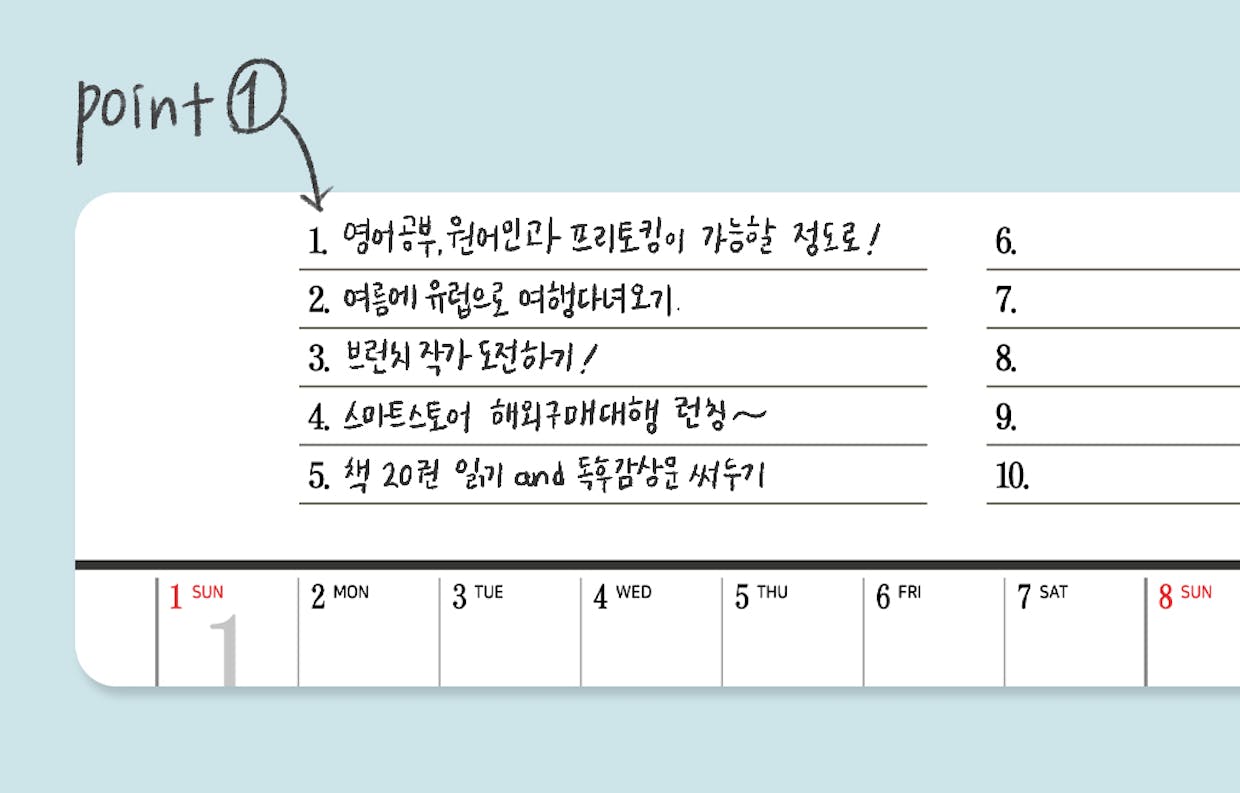 point ①
1. 영어공부, 원어민과 프리토킹이 가능할 정도로!
6.
2. 여름에 유럽으로 여행다녀오기.
7.
3. 브런치 작가 도전하기!
8.
4. 스마트스토어 해외구매대행 런칭~
9.
5. 책 20권 읽기 and 독후감상문 써두기
10.
1 SUN 2 MON 3 TUE 4 WED 5 THU 6 FRI 7 SAT 8 SUN
1